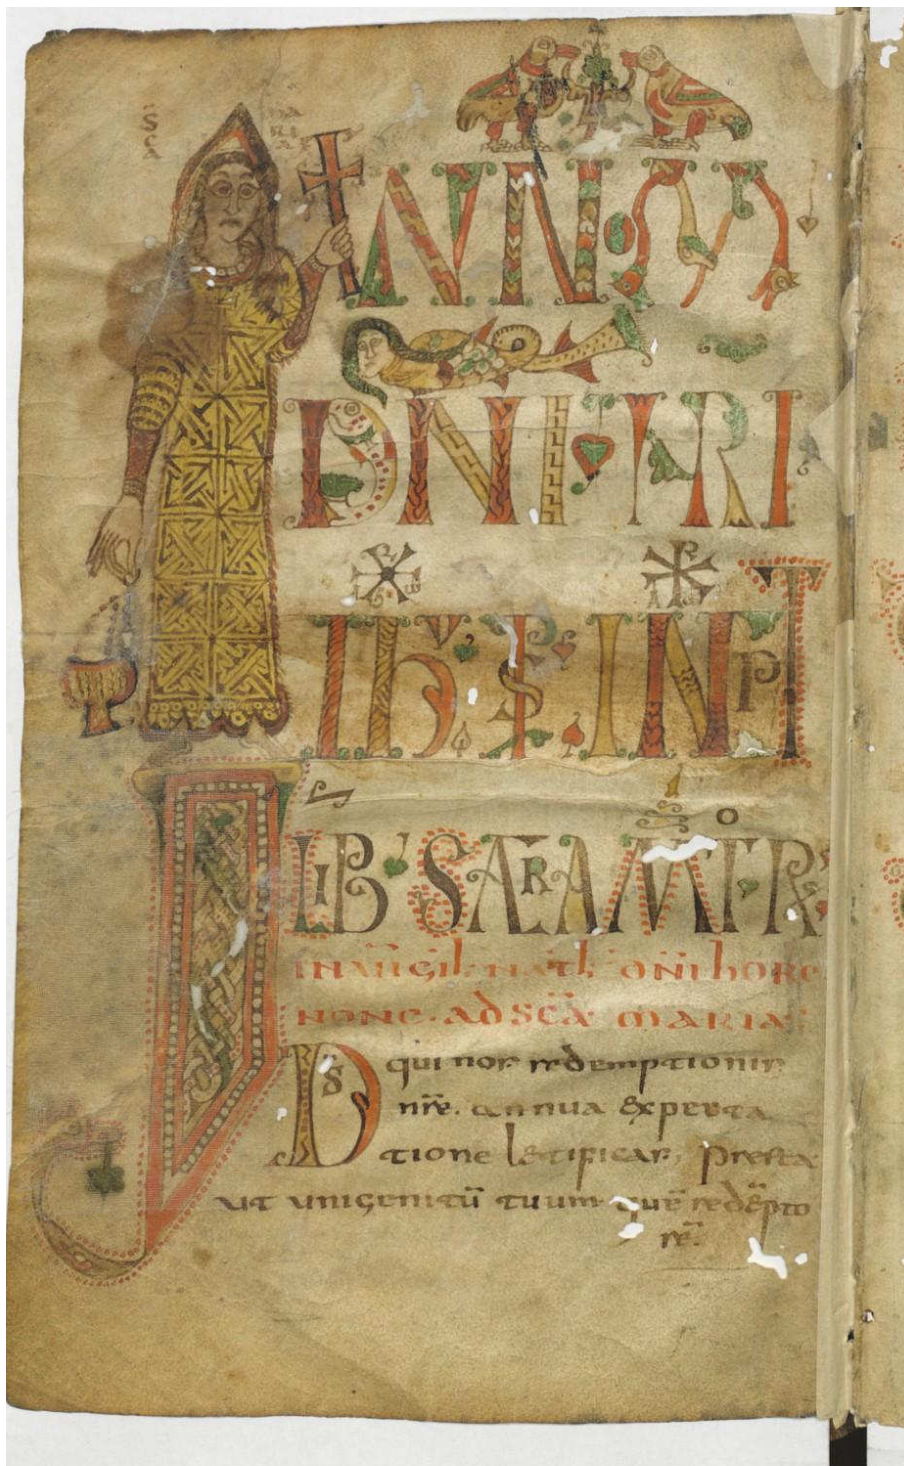 SCA MARIA
NNOM
DNI·NRI
IHV·XPI INCPT
LIB·SACRAMTOR
IN UIGIL NATL DÑI HORE
NONE. AD SCÃ MARIA
DS qui nos redemptionis
nrẽ. annua expecta
tione letificas, presta
ut unigenitũ tuum quẽ redẽpto
rẽ.